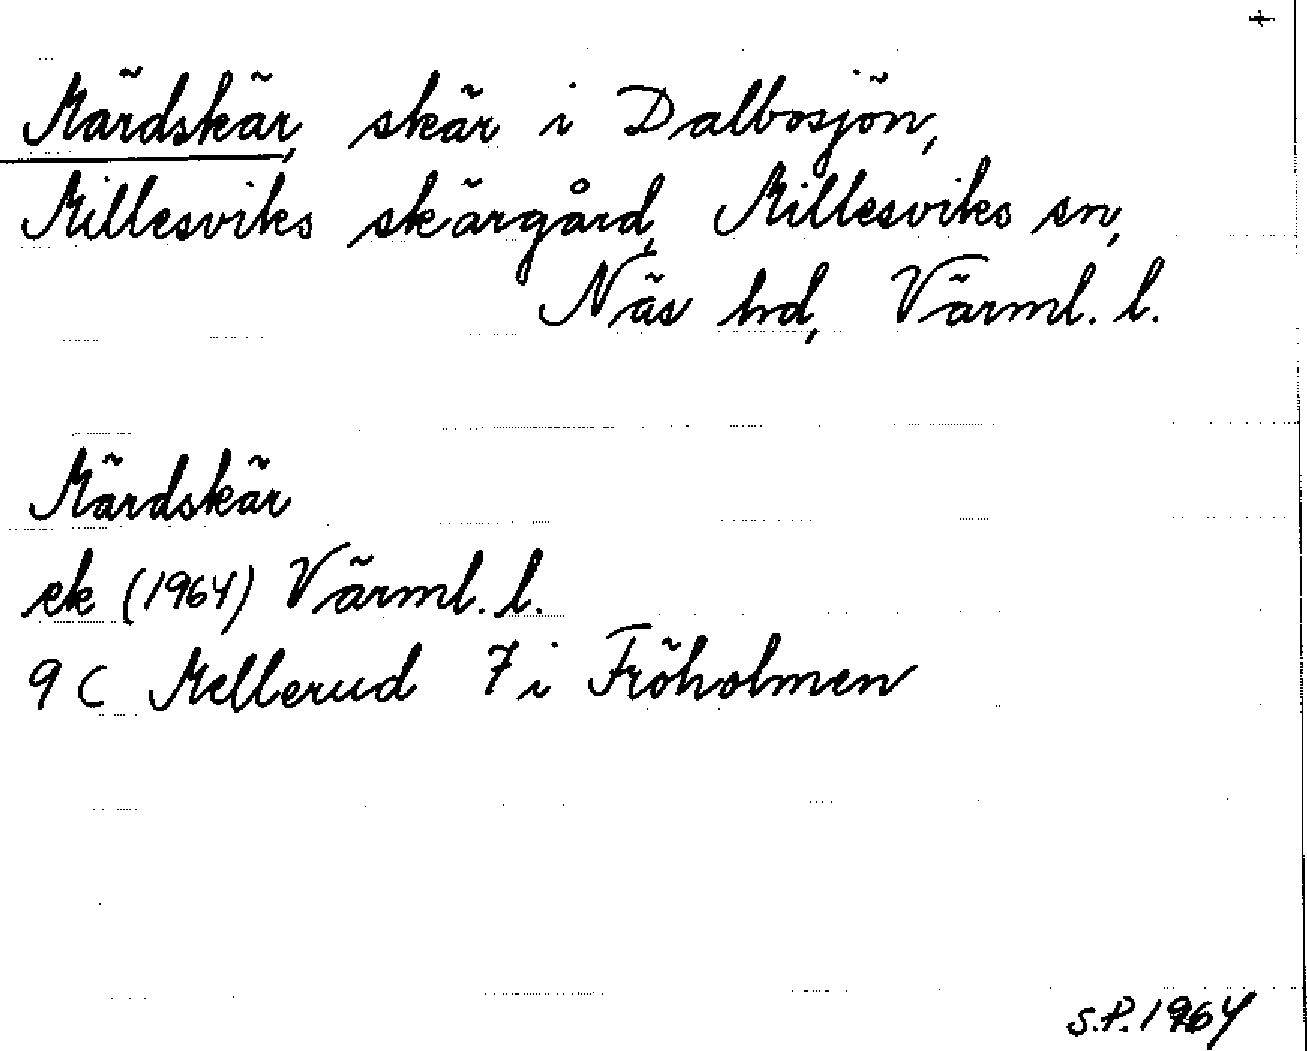 +
Märdskär, skär i Dalbosjön,
Millesviks skärgård, Millesviks sn,
Näs hd, Värml. l.
Märdskär
ek (1964) Värml. l.
9 C Mellerud 7 i Fröholmen
S.P. 1964